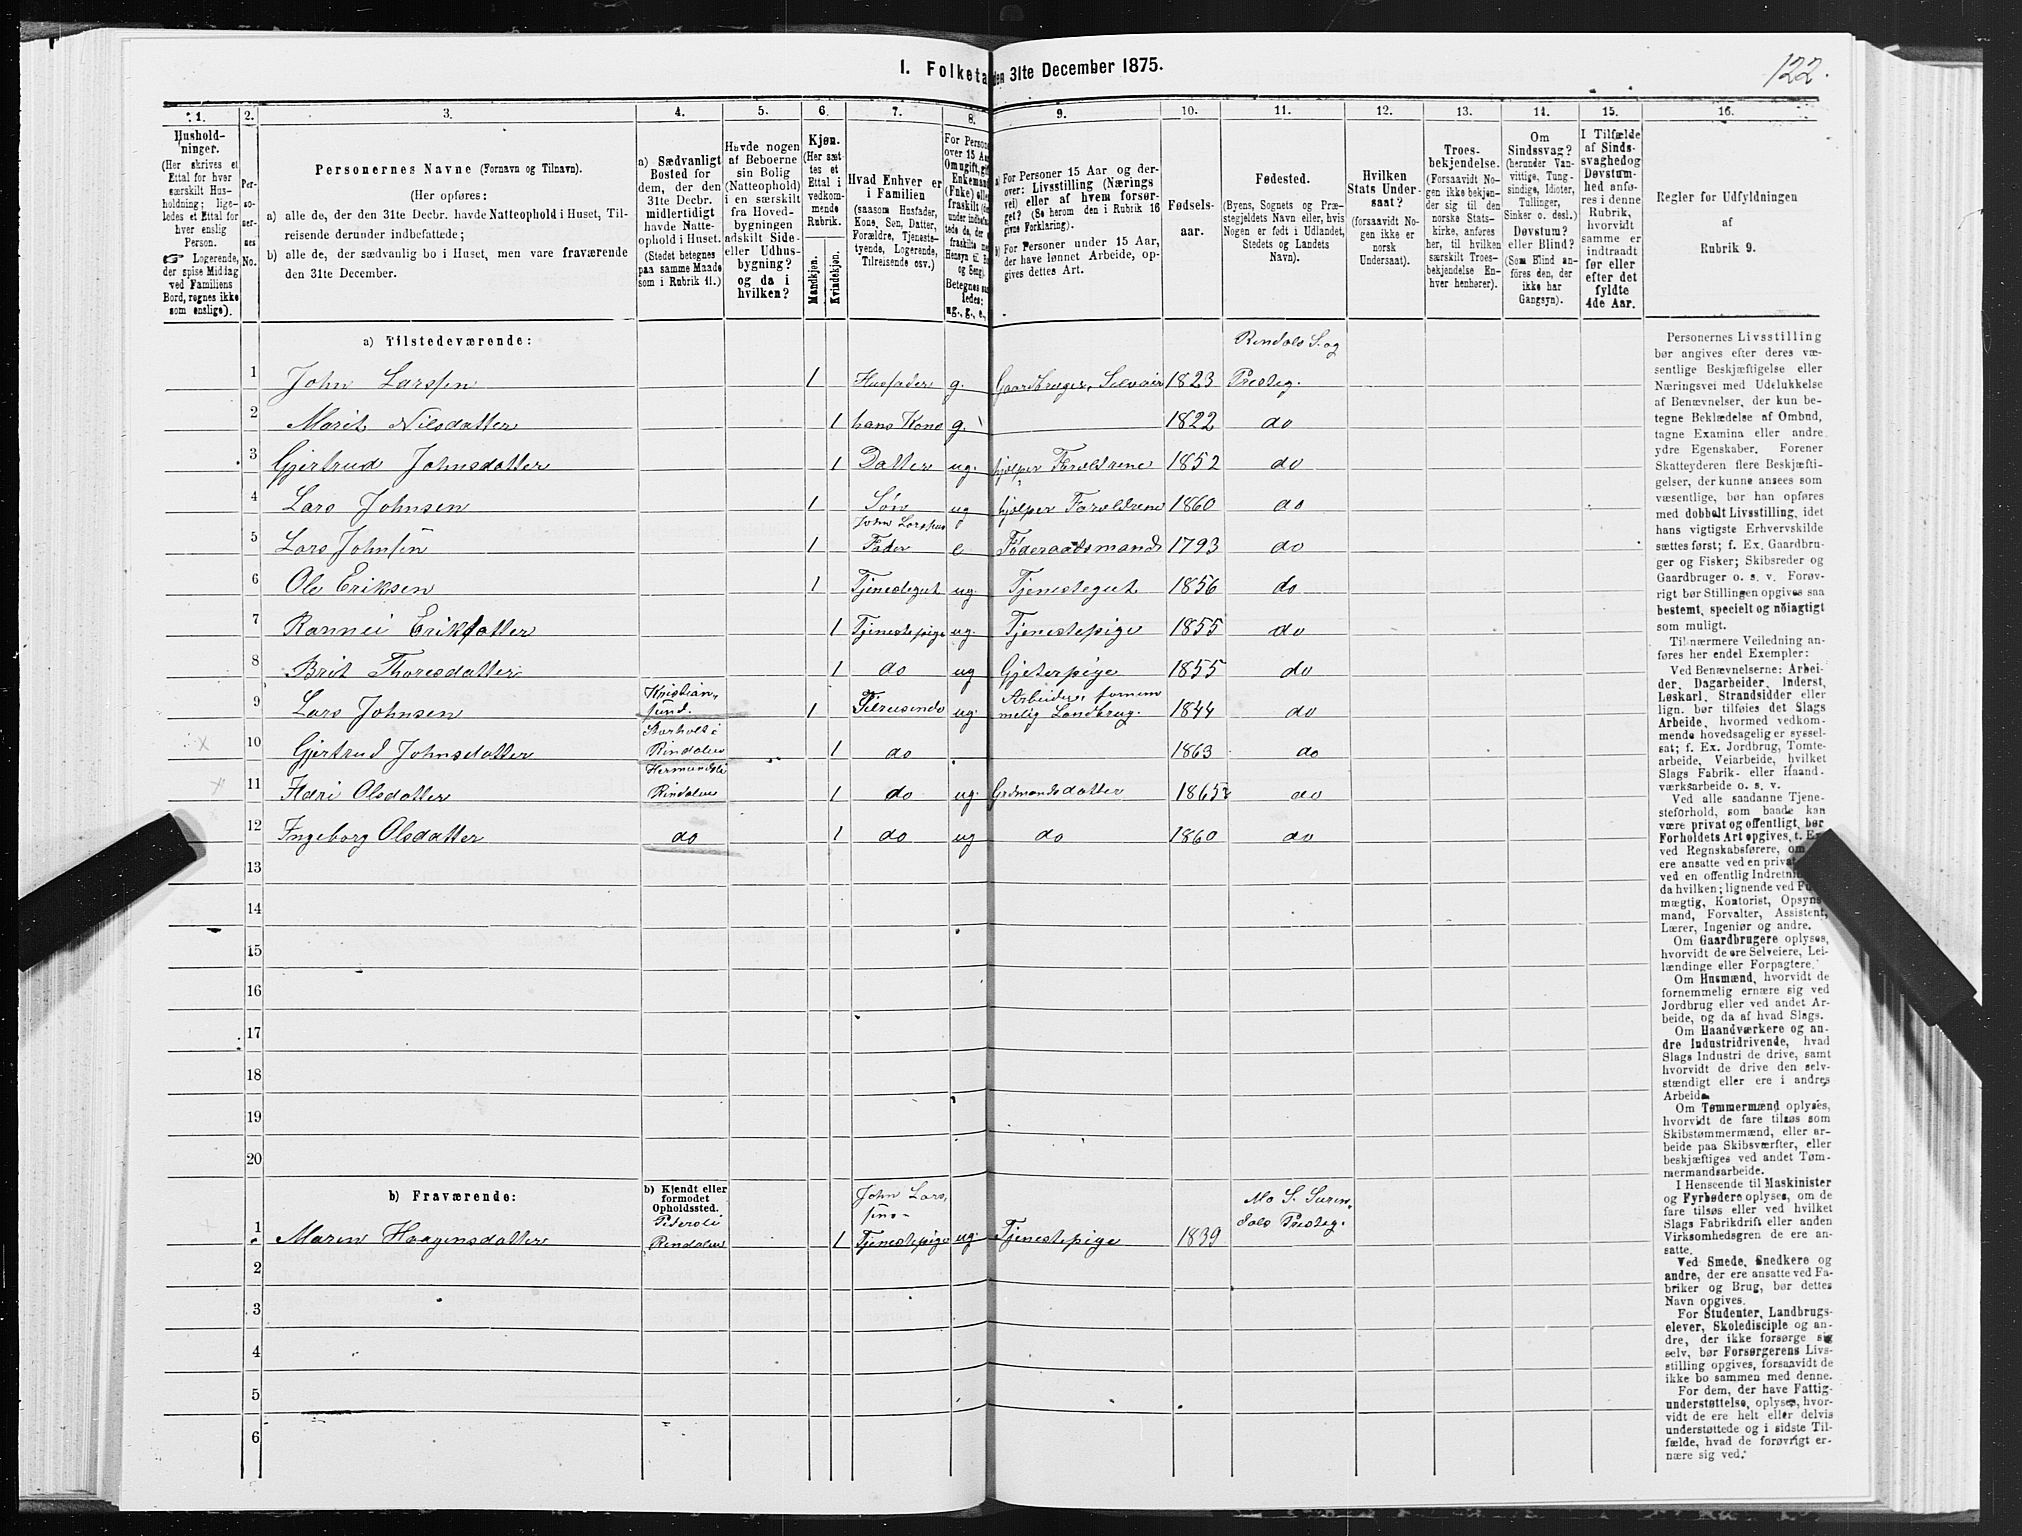 122.
I. Folketa
den 31te December 1875.
1. 2. 3. 4. 5. 6. 7. 8. 9. 10. 11. 12. 13. 14. 15. 16.
Hushold-
ninger.
(Her skrives et
Ettal for hver
særskilt Hus-
holdning; lige-
ledes et Ettal for
hver enslig
Person.
☞ Logerende,
der spise Middag
ved Familiens
Bord, regnes ikke
som enslige).
Per-
so-
ner-
nes
No.
Personernes Navne (Fornavn og Tilnavn).
(Her opføres:
a) alle de, der den 31te Decbr. havde Natteophold i Huset, Til-
reisende derunder indbefattede;
b) alle de, der sædvanlig bo i Huset, men vare fraværende
den 31te December.
a) Sædvanligt
Bosted for
dem, der den
31te Decbr.
midlertidigt
havde Natte-
ophold i Huset.
(Stedet betegnes
paa samme Maade
som i Rubrik 11.)
Havde nogen
af Beboerne
sin Bolig
(Natteophold)
i en særskilt
fra Hoved-
bygningen
adskilt Side-
eller Udhus-
bygning?
og da i
hvilken?
Kjøn.
(Her sæt-
tes et
Ettal i
vedkom-
mende
Rubrik.
Mandkjøn.
Kvindekjøn.
Hvad Enhver er
i Familien
(saasom Husfader,
Kone, Søn, Datter,
Forældre, Tjeneste-
tyende, Logerende,
Tilreisende osv.)
For Person
over 15 Aa
Om ugift, gif
Enkemand
(Fnke) elle
fraskilt (de
under indbefat
tede de, der e
fraskilte me
Hensyn til Bo
og Seng).
Betegnes saa
ledes:
ug., g., e.,
a) For Personer 15 Aar og der-
over: Livsstilling (Nærings
vei) eller af hvem forsør-
get? (Se herom den i Rubrik 16
givne Forklaring).
b) For Personer under 15 Aar,
der have lønnet Arbeide, op-
gives dettes Art.
Fødsels-
aar.
Fødested.
(Byens, Sognets og Præ-
stegjeldets Navn eller, hvis
Nogen er født i Udlandet,
Stedets og Landets
Navn).
Hvilken
Stats Under-
saat?
(forsaavidt No-
gen ikke er
norsk
Undersaat).
Troes-
bekjendelse.
(Forsaavidt No-
gen ikke bekjen-
der sig til den
norske Stats-
kirke, anføres
her, til hvilken
særskilt Troes-
bekjendelse En-
hver henhører).
Om
Sindssvag?
(herunder Van-
vittige, Tung-
sindige, Idioter,
Tullinger,
Sinker o. desl.)
Døvstum?
eller Blind?
(Som Blind an-
føres den, der
ikke har
Gangsyn).
I Tilfælde
af Sinds-
svaghed og
Døvstum-
hed anfø-
res i denne
Rubrik,
hvorvidt
samme er
indtraadt
før eller
efter det
fyldte
4de Aar.
Regler før Udfyldningen
af
Rubrik 9.
a) Tilstedeværende:
Rendals S. og
1 John Larssen 1 Husfader g. Gaardbruger, Selveier 1823 Presteg.
2 Marit Nilsdatter 1 hans Kone g. 1822 do
3 Gjertrud Johnsdatter 1 Datter ug. hjelper Forældrene 1852 do
4 Lars Johnsen 1 Søn ug hjelper Forældrene 1860 do
John Larssens
5 Lars Johnsen 1 Fader e Føderaadsmand 1793 do
6 Ole Eriksen 1 Tjenestegut ug. Tjenestegut 1856 do
7 Rannei Eriksdatter 1 Tjenestepige ug. Tjenestepige 1855 do
8 Brit Thoresdatter 1 do ug Gjeterpige 1855 do
Kristian- Arbeider fornem
9 Lars Johnsen sund. 1 Tilreisende ug. melig Landbrug. 1844 do
10 Gjertrud Johnsdatter Rindalen 1 do 1863 do
11 Olsdatter Rindalen 1 do ug. 1865 do
12 Ingeborg Olsdatter do 1 do ug do 1860 do
13
14
15
16
17
18
19
20
b) Fraværende:
b) Kjendt eller
formodet
Opholdssted.
John Lars,
sens
Mo S. Suren,
dals Presteg.
Pidersli
1 Maren Haagensdatter Rindalen 1 Tjenestepige ug. Tjenestepige 1839
2
3
4
5
6
Personernes Livsstilling
bør angives efter deres væ-
sentlige Beskjæftigelse eller
Næringsvei med Udelukkelse
af Benævnelser, der kun be-
tegne Beklædelse af Ombud,
tagne Examina eller andre
ydre Egenskaber. Forener
Skatteyderen flere Beskjæfti-
gelser, der kunne ansees som
væsentlige, bør han opføres
med dobbelt Livsstilling, idet
hans vigtigste Erhvervskilde
sættes først; f. Ex. Gaardbru-
ger og Fisker; Skibsreder og
Gaardbruger o. s. v. Forøv-
rigt bør Stillingen opgives saa
bestemt, specielt og nøiagtigt
som muligt.
Til nærmere Veiledning an-
føres her endel Exempler:
Ved Benævnelserne: Arbei-
der, Dagarbeider, Inderst,
Løskarl, Strandsidder eller
lign. bør tilføies det Slags
Arbeide, hvormed vedkom-
mende hovedsagelig er syssel-
sat; f. Ex. Jordbrug, Tomte-
arbeide, Veiarbeide, hvilket
Slags Fabrik- eller Haand-
værksarbeide o. s. v.
Ved alle saadanne Tjene-
steforhold, som baade kan
være privat og offentligt, bør
Forholdets Art opgives, t. Ex
ved Regnskabsførere, om
ere ansatte ved en privat
ved en offentlig Indretni
da hvilken; lignende ved Fu
mægtig, Kontorist, Opsyns
mand, Forvalter, Assistent,
Lærer, Ingeniør og andre.
Om Gaardbrugere oplyses,
hvorvidt de ere Selveiere, Lei-
lændinge eller Forpagtere.
Om Husmænd, hvorvidt de
fornemmelig ernære sig ved
Jordbrug eller ved andet Ar-
beide, og da af hvad Slags.
Om Haandværkere og an-
dre Industridrivende, hvad
Slags Industri de drive, samt
hvorvidt de drive den selv-
stændigt eller ere i andres
Arbeide.
Om Tømmermænd oplyses,
hvorvidt de fare tilsøs som
Skibstømmermænd, eller ar-
beide paa Skibsværfter, eller
beskjæftiges ved andet Tøm-
mermandsarbeide.
I Henseende til Maskinister
og Fyrbødere oplyses, om de
fare tilsøs eller ved hvilket
Slags Fabrikdrift eller anden
Virksomhedsgren de ere an-
satte.
Ved Smede, Snedkere og
andre, der ere ansatte ved Fa-
briker og Brug, bør dettes
Navn opgives.
For Studenter, Landbrugs-
elever, Skoledisciple og an-
dre, der ikke forsørge sig
selv, bør Forsørgerens Livs-
stilling opgives, forsaavidt de
ikke bo sammen med denne.
For dem, der have Fattig-
understøttelse, oplyses, hvor-
vidt de ere helt eller delvis
understøttede og i sidste Til-
fælde, hvad de forøvrigt er-
nære sig ved.